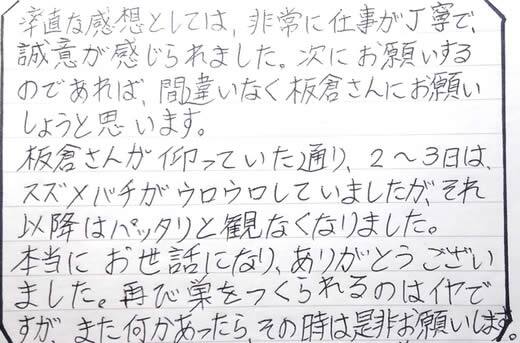 率直な感想としては、非常に仕事が丁寧で、
誠意が感じられました。次にお願いする
のであれば、間違いなく板倉さんにお願い
しようと思います。
板倉さんが仰っていた通り、2～3日は、
スズメバチがウロウロしていましたが、それ
以降はパッタリと観なくなりました。
本当に お世話になり、ありがとうござい
ました。再び巣をつくられるのはイヤで
すが、また何かあったら、その時は是非お願いします。